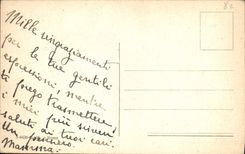 Mille ringraziamenti
per le tue gentili
espressioni, mentre
ti prego trasmettere
i miei più sinceri
saluti ai tuoi cari.
Un pensiero
Mamma